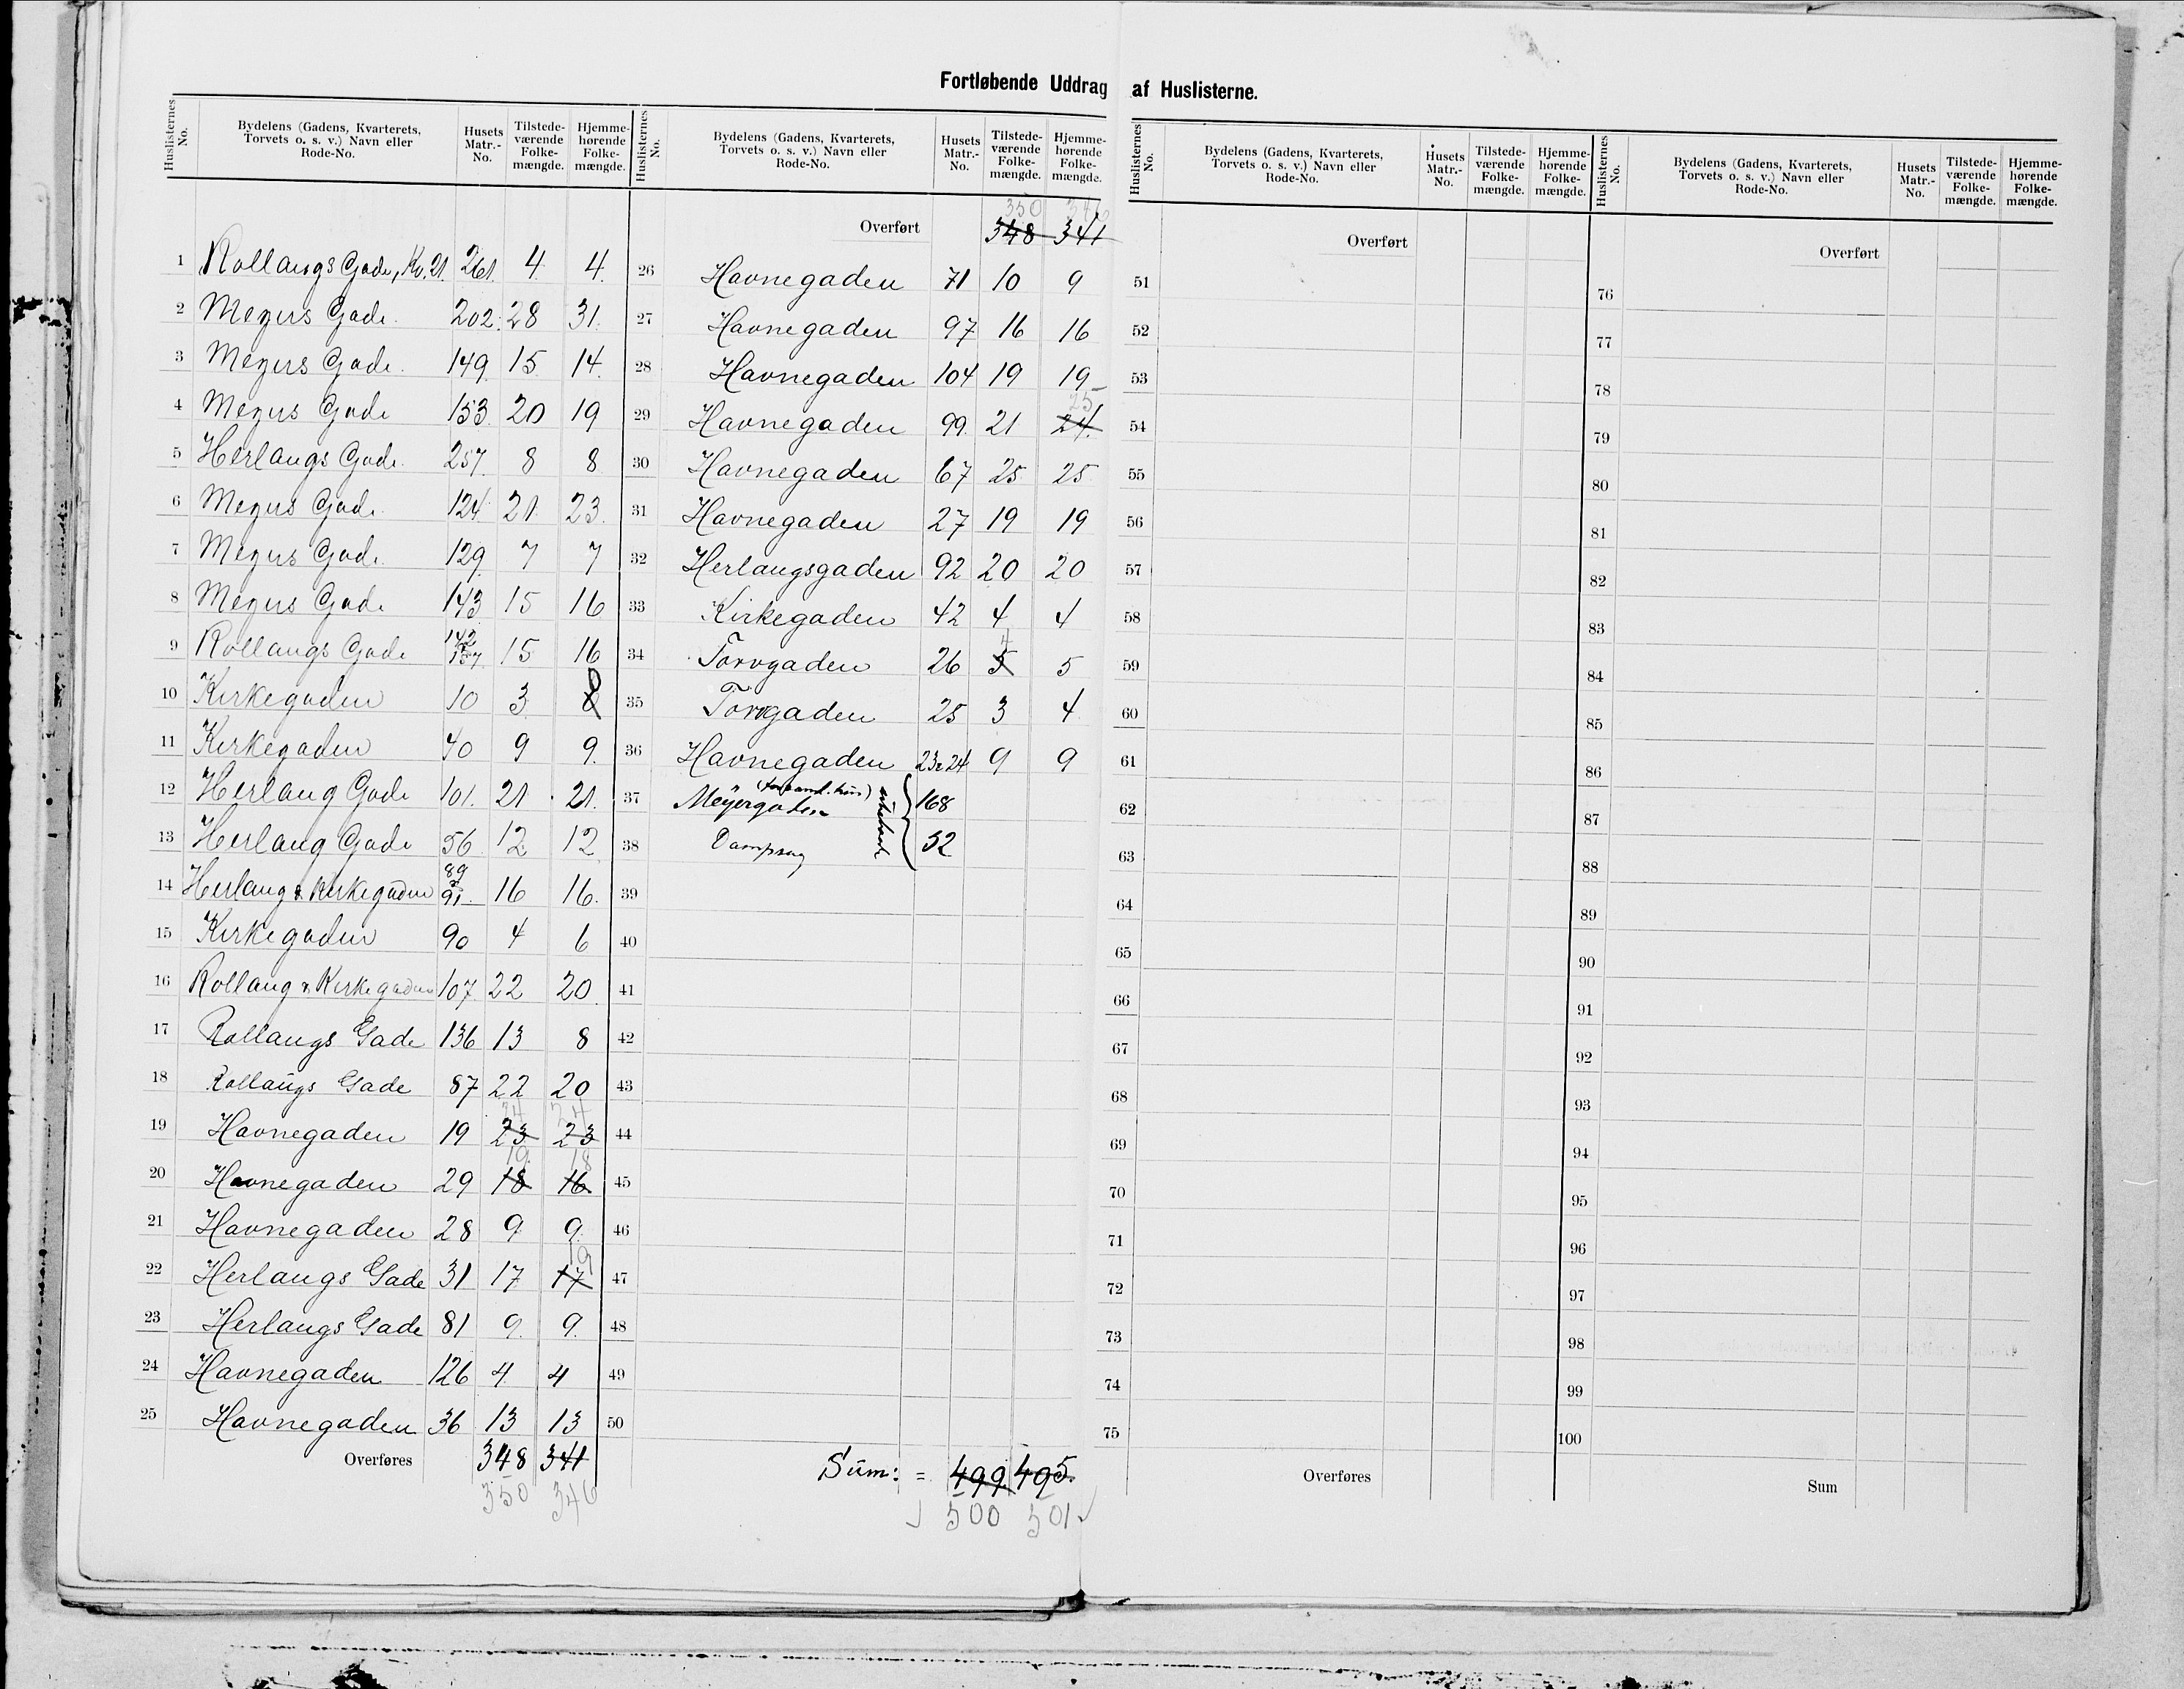 Fortløbende Uddrag af Huslisterne.
Huslisternes No. Bydelens (Gadens, Kvarterets, Torvets o. s. v.) Navn eller Rode-No. Husets Matr.-No. Tilstede-værende Folke-mængde. Hjemme-hørende Folke-mængde.
1 Rollangs Gade, Kv. 21. 261. 4. 4.
2 Meyers Gade. 202. 28 31.
3 Meyers Gade. 149. 15 14.
4 Meyers Gade 153. 20 19
5 Herlaugs Gade. 257. 8 8
6 Meyers Gade. 124. 21. 23.
7 Meyers Gade. 129. 7 7
8 Meyers Gade 143 15 16
9 Rollaugs Gade 142 & 157. 15 16
10 Kirkegaden 10 3
11 Kirkegaden 40 9 9.
12 Herlaug Gade 101. 21. 21.
13 Herlaug Gade 56 12 12
14 Herlaug & Kirkegaden 89 & 91. 16 16.
15 Kirkegaden 90 4 6
16 Rollaug & Kirkegaden 107. 22 20.
17 Rollaugs Gade 136 13 8
18 Rollaugs Gade 87 22 20
24 24
19 Havnegaden 19 23 23
19. 18
20 Havnegaden 29 18 16
21 Havnegaden 28 9 9.
19
22 Herlaugs Gade 31 17 17
23 Herlaugs Gade 81 9. 9.
24 Havnegaden 126 4 4
25 Havnegaden 36 13 13
Overføres 348 341
350 346
Huslisternes No. Bydelens (Gadens, Kvarterets, Torvets o. s. v.) Navn eller Rode-No. Husets Matr.-No. Tilstede-værende Folke-mængde. Hjemme-hørende Folke-mængde.
350 346
Overført 348 341
26 Havnegaden 71 10 9
27 Havnegaden 97 16 16
28 Havnegaden 104 19 19
25
29 Havnegaden 99. 21 24.
30 Havnegaden 67 25 25
31 Havnegaden 27 19 19
32 Herlaugsgaden 92 20 20
33 Kirkegaden 42 4 4
4
34 Torvgaden 26 5 5
35 Torvgaden 25 3 4
36 Havnegaden 23 & 24 9 9
37 Meyergaden 168
38 Dampsag 52
39
40
41
42
43
44
45
46
47
48
49
50
Sum: = 499. 495.
500 501
Huslisternes No. Bydelens (Gadens, Kvarterets, Torvets o. s. v.) Navn eller Rode-No. Husets Matr.-No. Tilstede-værende Folke-mængde. Hjemme-hørende Folke-mængde.
Overført
51
52
53
54
55
56
57
58
59
60
61
62
63
64
65
66
67
68
69
70
71
72
73
74
75
Overføres
Huslisternes No. Bydelens (Gadens, Kvarterets, Torvets o. s. v.) Navn eller Rode-No. Husets Matr.-No. Tilstede-værende Folke-mængde. Hjemme-hørende Folke-mængde.
Overført
76
77
78
79
80
81
82
83
84
85
86
87
88
89
90
91
92
93
94
95
96
97
98
99
100
Sum